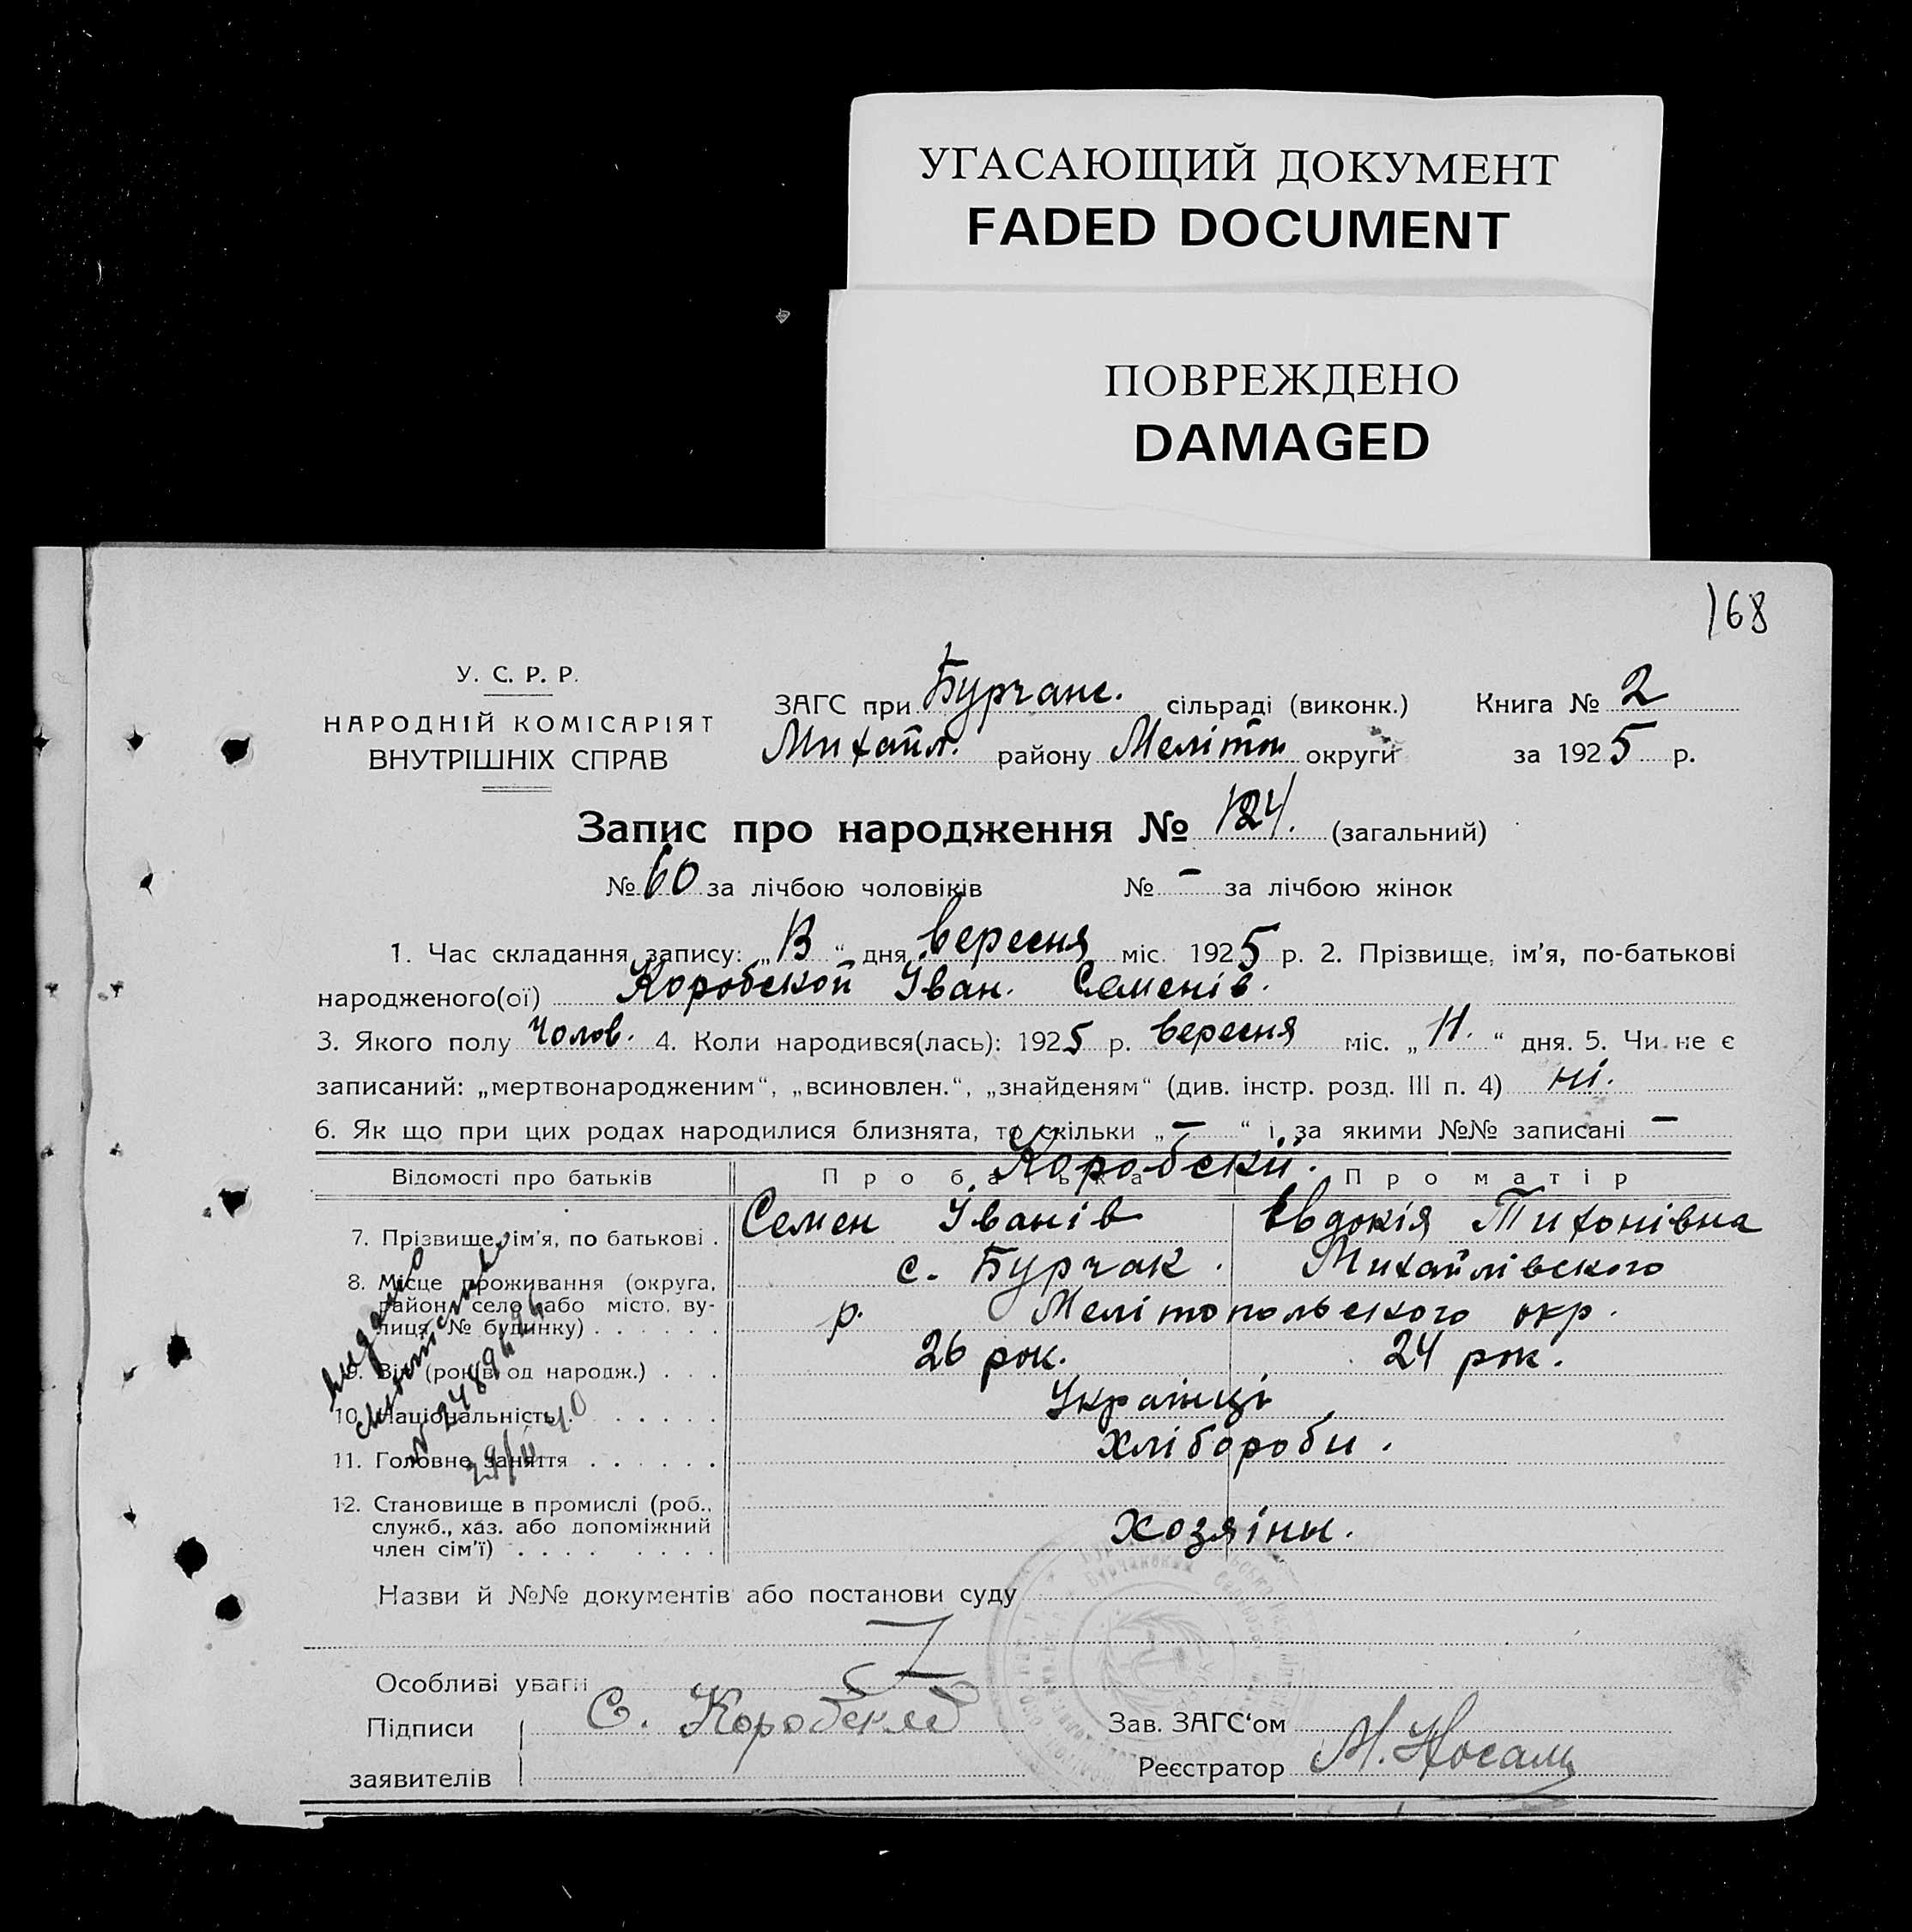 УГАСАЮЩИЙ ДОКУМЕНТ
FADED DOCUMENT
ПОВРЕЖДЕНО
DAMAGED
168
У. С. Р. Р.
НАРОДНІЙ КОМІСАРІЯТ
ВНУТРІШНІХ СПРАВ
ЗАГС при Бурчанс. сільраді (виконк.) Книга № 2
Михайл. району Меліто� округи за 1925 р.
Запис про народження № 124. (загальний)
№ 60 за лічбою чоловіків № – за лічбою жінок
1. Час складання запису: „13“ дня вересня міс. 1925 р. 2. Прізвище, ім’я, по-батькові
народженого(ої) Коробской Іван. Семенів.
3. Якого полу чолов. 4. Коли народився(лась): 1925 р. вересня міс. „11.“ дня. 5. Чи не є
записаний: „мертвонародженим“, „всиновлен.“, „знайденям“ (див. інстр. розд. III п. 4) ні.
6. Як що при цих родах народилися близнята, то скільки „–“ і за якими №№ записані –
Коробскі.
Відомості про батьків Про батька Про матір
7. Прізвище, ім’я, по батькові . Семен Іванів Евдокія Тихонівна
8. Місце проживання (округа, район, село або місто, вулиця, № будинку) . . . . . . с. Бурчак. Михайлівского
р. Мелітопольского окр.
9. Вік (років од народж.) . . . 26 рок. 24 рок.
10. Національність . . . . . . Українці
11. Головне заняття . . . . . . хлібороби.
12. Становище в промислі (роб., служб., хаз. або допоміжний член сім’ї) . . . . . . . . хозяіни.
Назви й №№ документів або постанови суду
Особливі уваги
Підписи С. Коробскеб Зав. ЗАГС‘ом
заявителів Реєстратор М. Носам